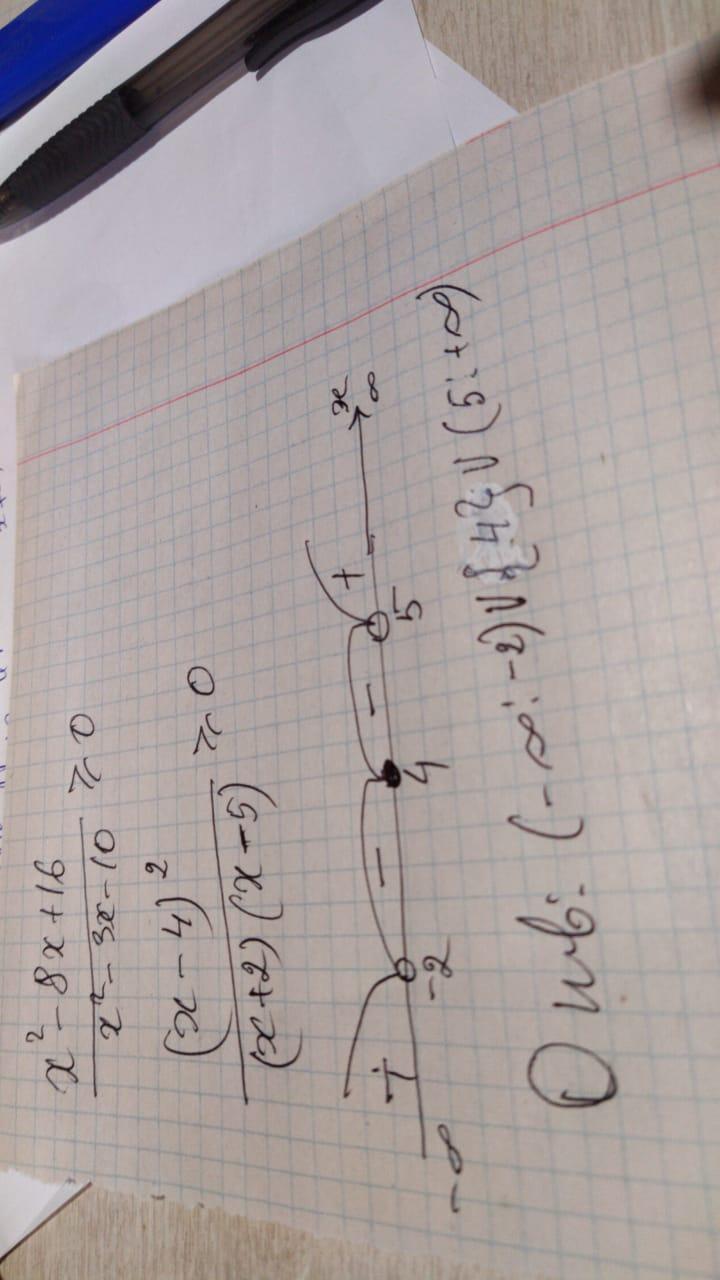 x² - 8x + 16
x² - 3x - 10 ⩾ 0
(x - 4)²
(x+2)(x-5) ⩾ 0
+ - - + x
-∞ -2 4 5 ∞
Ответ: (-∞; -2)∪{4}∪(5; +∞)